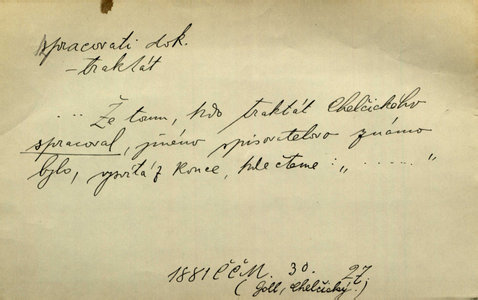 spracovati dok.
– traktát
... Že tomu, kdo traktát Chelčického
spracoval, jméno spisovatelovo známo
bylo, vysvítá z konce, kde čteme: „ ...... "
1881 ČČM. 30. 27
(Goll, Chelčický.)